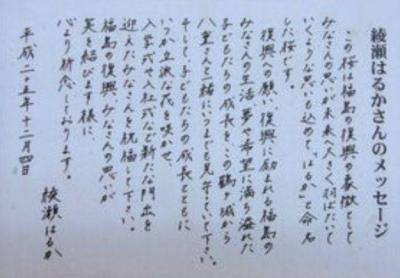 綾瀬はるかさんのメッセージ
この桜は福島の復興の象徴として
みなさんの思いが未来へ大きく羽ばたいて
いくような思いも込めて"はるか"と命名
した桜です。
復興への願い、復興に励まれる福島の
みなさんの生活、夢や希望に満ち溢れた
子どもたちの成長を、この鶴ヶ城から
八重さんと一緒にいつまでも見守っていて下さい。
そして、子どもたちの成長とともに
いつか立派な花を咲かせ、
入学式や入社式など新たな門出を
迎えたみなさんを祝福して下さい。
福島の復興、みなさんの思いが
実を結びます様に、
心より祈念しております。
平成二十五年十二月四日
綾瀬はるか